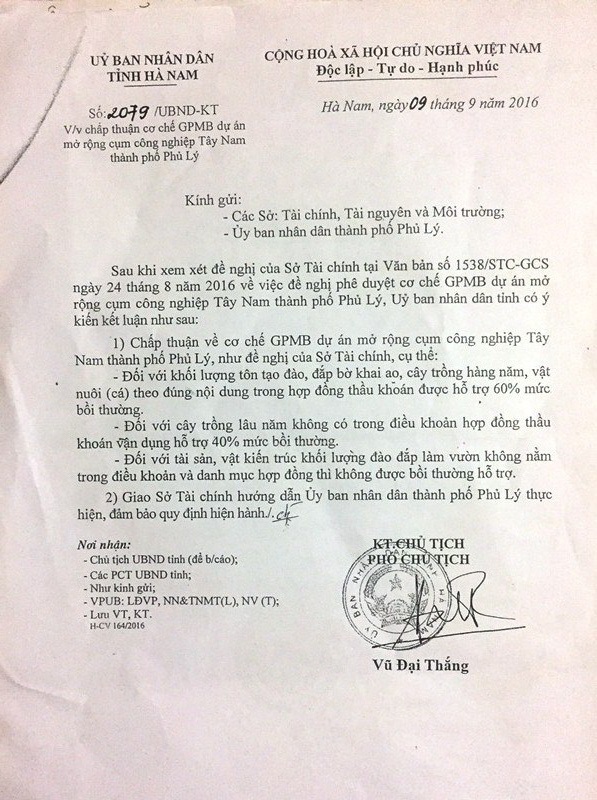 UỶ BAN NHÂN DÂN
TỈNH HÀ NAM
CỘNG HOÀ XÃ HỘI CHỦ NGHĨA VIỆT NAM
Độc lập - Tự do - Hạnh phúc
Số: 2079 /UBND-KT
V/v chấp thuận cơ chế GPMB dự án
mở rộng cụm công nghiệp Tây Nam
thành phố Phủ Lý
Hà Nam, ngày 09 tháng 9 năm 2016
Kính gửi:
- Các Sở: Tài chính, Tài nguyên và Môi trường;
- Ủy ban nhân dân thành phố Phủ Lý.
Sau khi xem xét đề nghị của Sở Tài chính tại Văn bản số 1538/STC-GCS
ngày 24 tháng 8 năm 2016 về việc đề nghị phê duyệt cơ chế GPMB dự án mở
rộng cụm công nghiệp Tây Nam thành phố Phủ Lý, Uỷ ban nhân dân tỉnh có ý
kiến kết luận như sau:
1) Chấp thuận về cơ chế GPMB dự án mở rộng cụm công nghiệp Tây
Nam thành phố Phủ Lý, như đề nghị của Sở Tài chính, cụ thể:
- Đối với khối lượng tôn tạo đào, đắp bờ khai ao, cây trồng hàng năm, vật
nuôi (cá) theo đúng nội dung trong hợp đồng thầu khoán được hỗ trợ 60% mức
bồi thường.
- Đối với cây trồng lâu năm không có trong điều khoản hợp đồng thầu
khoán vận dụng hỗ trợ 40% mức bồi thường.
- Đối với tài sản, vật kiến trúc khối lượng đào đắp làm vườn không nằm
trong điều khoản và danh mục hợp đồng thì không được bồi thường hỗ trợ.
2) Giao Sở Tài chính hướng dẫn Ủy ban nhân dân thành phố Phủ Lý thực
hiện, đảm bảo quy định hiện hành./.
Nơi nhận:
- Chủ tịch UBND tỉnh (để b/cáo);
- Các PCT UBND tỉnh;
- Như kính gửi;
- VPUB: LĐVP, NN&TNMT(L), NV (T);
- Lưu VT, KT.
H-CV 164/2016
KT.CHỦ TỊCH
PHÓ CHỦ TỊCH
Vũ Đại Thắng